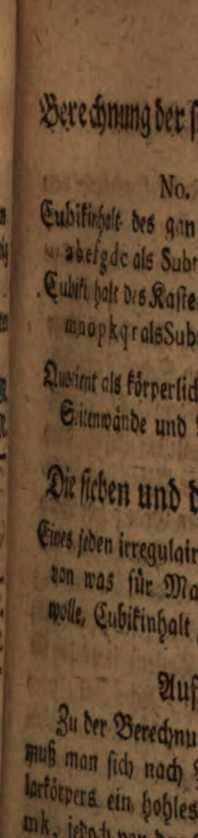 Berechnung der
No.
Cubikinhalt des gan
abefgdc als Subt
Cubikinhalt des Kaste
mnopkqr als Sub
Quotient als körperlich
Seitenwände und
Die sieben und d
Eines jeden irregulair
von was für Ma
wolle, Cubikinhalt
Auf
Zu der Berechnu
muß man sich nach
larkörpers ein hohles
mk, jedoch